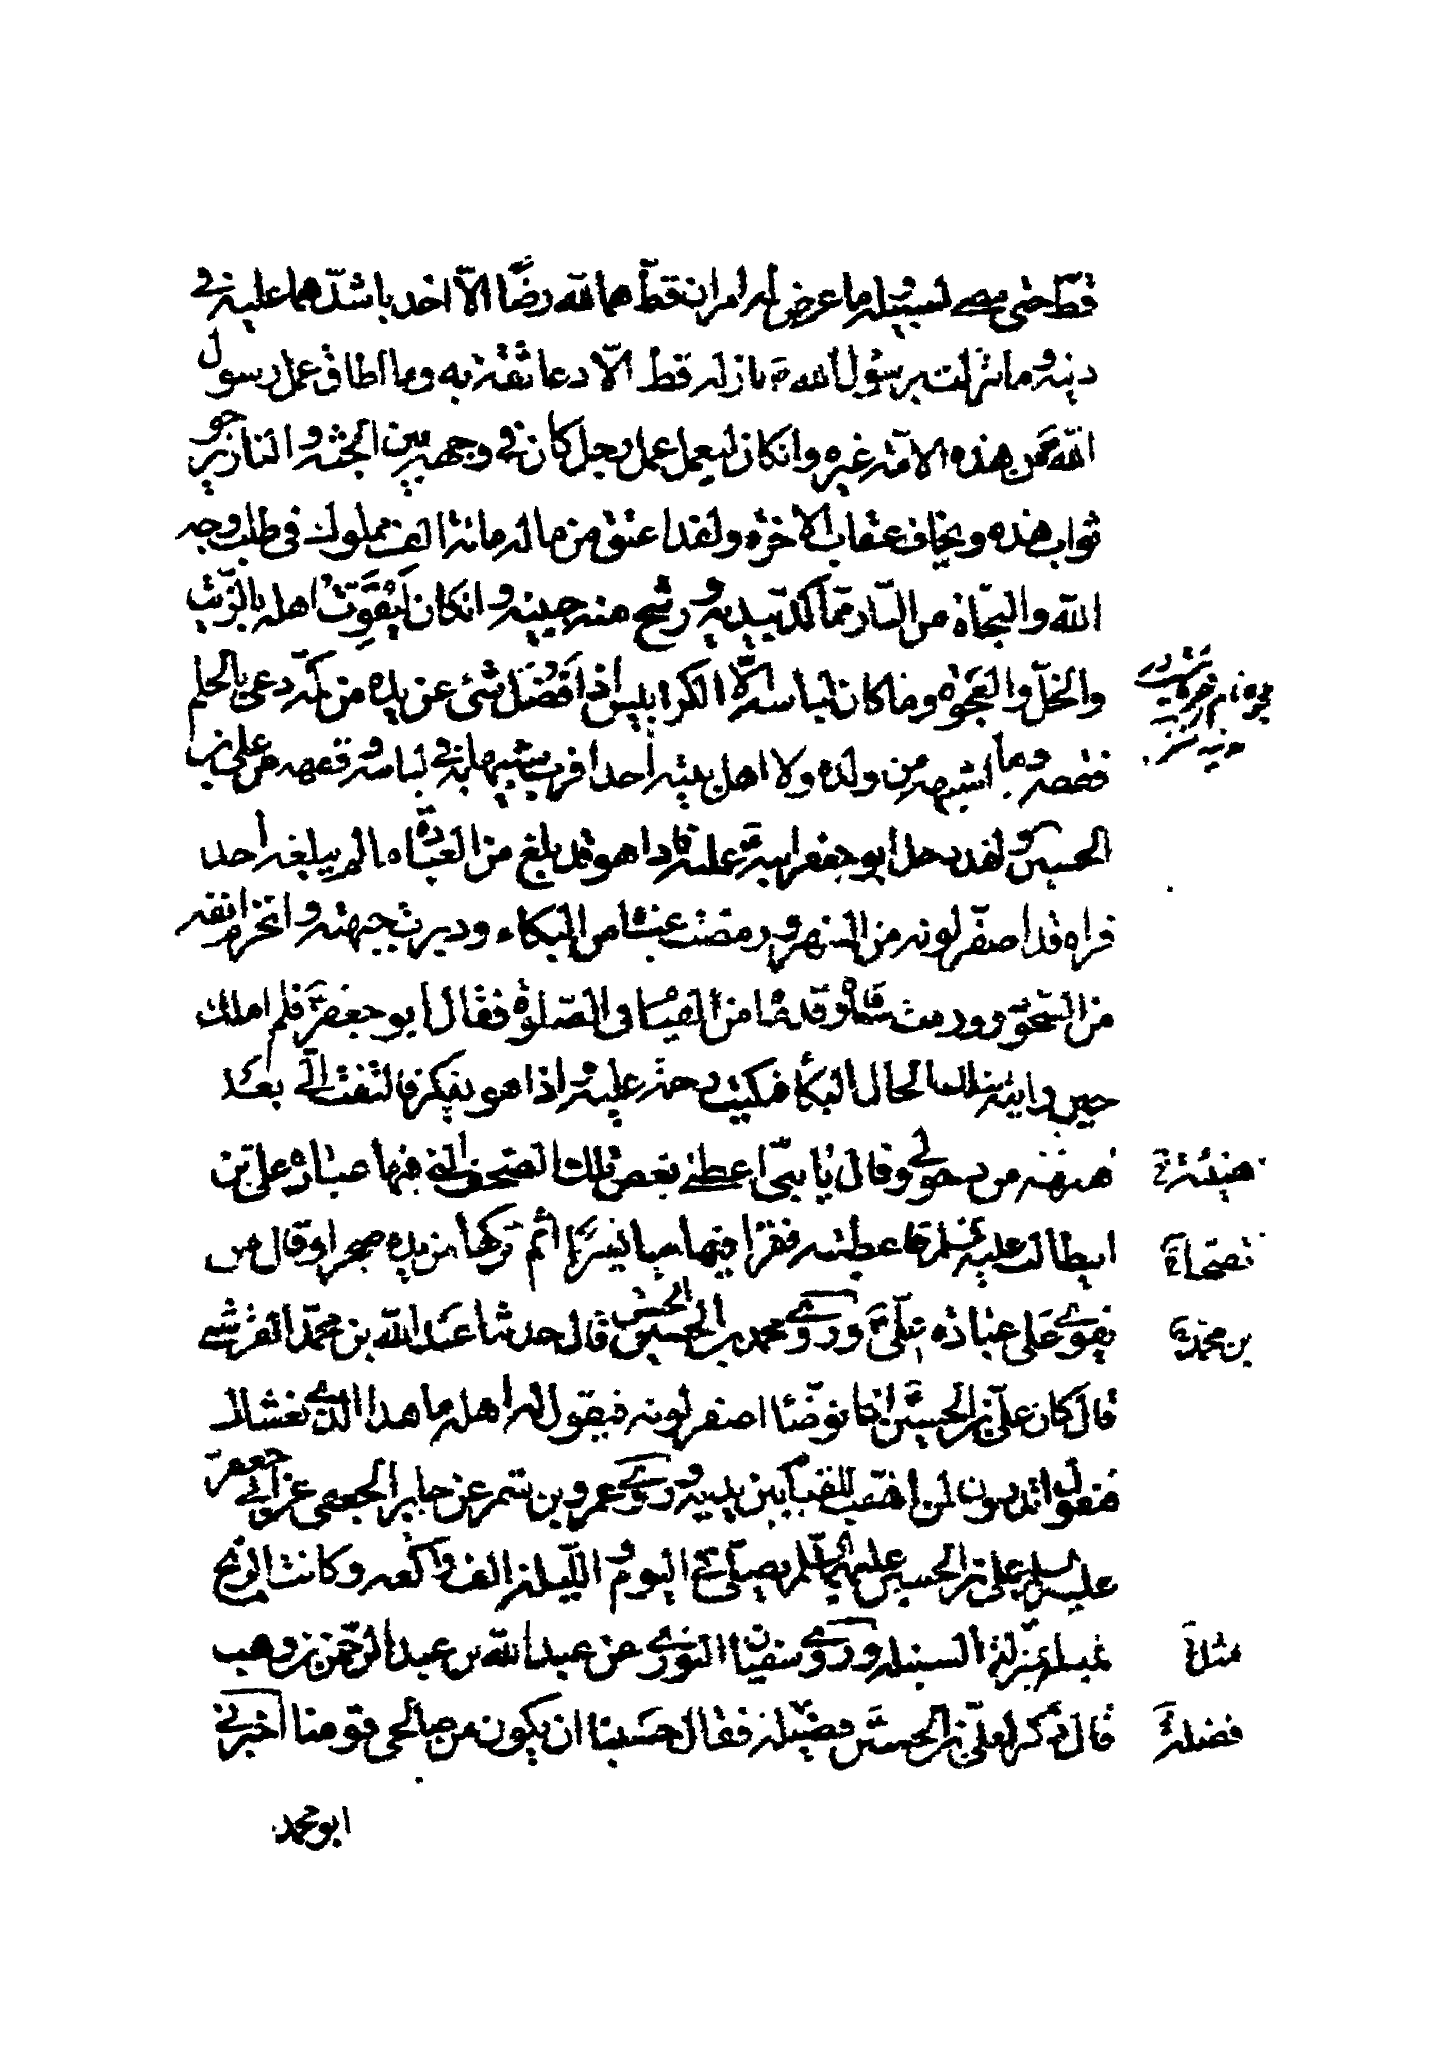 قط حتى مضى لسبيله وما عرض له امران قط هما لله رضًا الّا اخذ باشدّهما عليه في
دينه وما نزلت برسول الله ص نازلة قط الّا دعا ثقة به وما اطاق عمل رسول
الله ص من هذه الامّة غيره وان كان ليعمل عمل رجل كان في وجهه بين الجنّة والنار يرجو
ثواب هذه ويخاف عقاب الاخرة ولقد اعتق من ماله مائة الف مملوك في طلب وجه
الله والنجاة من النار ممّا كدّ بيديه ورشح منه جبينه وان كان ليقوت اهله بالزيت
والخلّ والعجوة وما كان لباسه الّا الكرابيس اذا فضل شئ عن يده من كمّه دعى بالجلم
فقصه وما اشبهه من ولده ولا اهل بيته احد اقرب شبها به في لباسه وفقهه من علي بن
الحسين ولقد دخل ابو جعفر ابنه ع عليه فاذا هو قد بلغ من العبادة ما لم يبلغه احد
فراه قد اصفرّ لونه من السهر ورمصت عيناه من البكاء ودبرت جبهته وانخرم انفه
من السجود وورمت ساقاه وقدماه من القيام في الصلوة فقال ابو جعفر ع فلم املك
حين رايته بتلك الحال البكاء فبكيت رحمة عليه واذا هو يفكر فالتفت الّي بعد
هنيهة من دخولي وقال يا بنيّ اعطني بعض تلك الصحف التي فيها عبادة علي بن
ابيطالب عليه السلم فاعطيته فقرا فيها شيئا يسيرًا ثم تركها من يده ضجرا وقال من
يقوى على عبادة علّي ع وروى محمد بن الحسين قال حدثنا عبد الله بن محمّد القرشي
قال كان علّي بن الحسين ع اذا توضّئا اصفر لونه فيقول له اهله ما هذا الذي يغشاك
فيقول اتدرون لمن اتاهّب للقيام بين يديه وروى عمرو بن شمر عن جابر الجعفي عن ابي جعفر
عليه السلم علي بن الحسين عليهما السلم يصلّي في اليوم والليلة الف ركعة وكانت الريح
تميله بمنزلة السنبله وروى سفيان الثوري عن عبيد الله بن عبد الرحمن بن وهب
قال ذكر لعلّي بن الحسين ع فضيلة فقال حسبنا ان يكون من صالحي قومنا اخبرني
هنيئة
نصحاء
بن محمد
مثل
فضله
ابو محمد